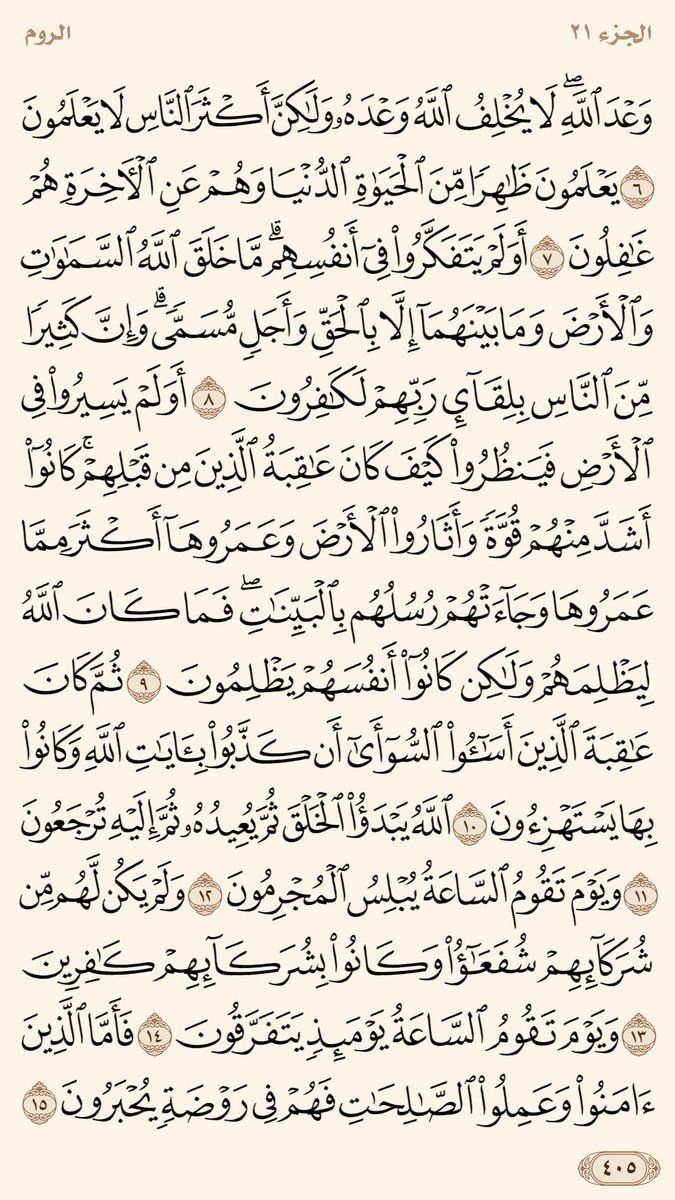 الجزء ٢١
الروم
وَعْدَ ٱللَّهِۖ لَا يُخْلِفُ ٱللَّهُ وَعْدَهُۥ وَلَٰكِنَّ أَكْثَرَ ٱلنَّاسِ لَا يَعْلَمُونَ
٦ يَعْلَمُونَ ظَٰهِرًا مِّنَ ٱلْحَيَوٰةِ ٱلدُّنْيَا وَهُمْ عَنِ ٱلْأٓخِرَةِ هُمْ
غَٰفِلُونَ ٧ أَوَلَمْ يَتَفَكَّرُوا۟ فِىٓ أَنفُسِهِمۗ مَّا خَلَقَ ٱللَّهُ ٱلسَّمَٰوَٰتِ
وَٱلْأَرْضَ وَمَا بَيْنَهُمَآ إِلَّا بِٱلْحَقِّ وَأَجَلٍ مُّسَمًّىۗ وَإِنَّ كَثِيرًا
مِّنَ ٱلنَّاسِ بِلِقَآئِ رَبِّهِمْ لَكَٰفِرُونَ ٨ أَوَلَمْ يَسِيرُوا۟ فِى
ٱلْأَرْضِ فَيَنظُرُوا۟ كَيْفَ كَانَ عَٰقِبَةُ ٱلَّذِينَ مِن قَبْلِهِمْۚ كَانُوٓا۟
أَشَدَّ مِنْهُمْ قُوَّةً وَأَثَارُوا۟ ٱلْأَرْضَ وَعَمَرُوهَآ أَكْثَرَ مِمَّا
عَمَرُوهَا وَجَآءَتْهُمْ رُسُلُهُم بِٱلْبَيِّنَٰتِۖ فَمَا كَانَ ٱللَّهُ
لِيَظْلِمَهُمْ وَلَٰكِن كَانُوٓا۟ أَنفُسَهُمْ يَظْلِمُونَ ٩ ثُمَّ كَانَ
عَٰقِبَةَ ٱلَّذِينَ أَسَٰٓـُٔوا۟ ٱلسُّوٓأَىٰٓ أَن كَذَّبُوا۟ بِـَٔايَٰتِ ٱللَّهِ وَكَانُوا۟
بِهَا يَسْتَهْزِءُونَ ١٠ ٱللَّهُ يَبْدَؤُا۟ ٱلْخَلْقَ ثُمَّ يُعِيدُهُۥ ثُمَّ إِلَيْهِ تُرْجَعُونَ
١١ وَيَوْمَ تَقُومُ ٱلسَّاعَةُ يُبْلِسُ ٱلْمُجْرِمُونَ ١٢ وَلَمْ يَكُن لَّهُم مِّن
شُرَكَآئِهِمْ شُفَعَٰٓؤُا۟ وَكَانُوا۟ بِشُرَكَآئِهِمْ كَٰفِرِينَ
١٣ وَيَوْمَ تَقُومُ ٱلسَّاعَةُ يَوْمَئِذٍ يَتَفَرَّقُونَ ١٤ فَأَمَّا ٱلَّذِينَ
ءَامَنُوا۟ وَعَمِلُوا۟ ٱلصَّٰلِحَٰتِ فَهُمْ فِى رَوْضَةٍ يُحْبَرُونَ ١٥
٤٠٥